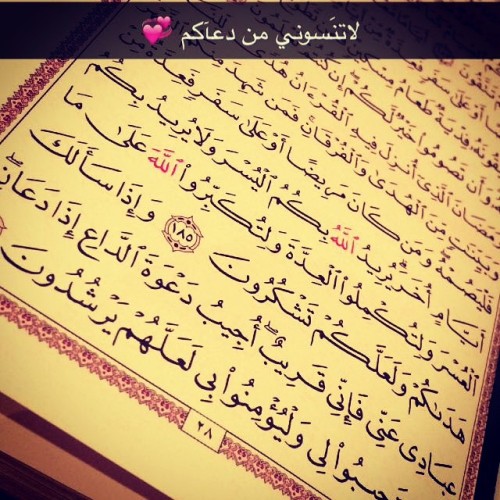 لاتنَسوني من دعاَكم 💞
وَأَن تَصُومُوا۟ خَيْرٌ لَّكُمْ إِن
رَمَضَانَ ٱلَّذِىٓ أُنزِلَ فِيهِ ٱلْقُرْءَانُ هُدًى
وَبَيِّنَٰتٍ مِّنَ ٱلْهُدَىٰ وَٱلْفُرْقَانِ فَمَن شَهِدَ
فَلْيَصُمْهُ وَمَن كَانَ مَرِيضًا أَوْ عَلَىٰ سَفَرٍ فَعِدَّةٌ
أَيَّامٍ أُخَرَ يُرِيدُ ٱللَّهُ بِكُمُ ٱلْيُسْرَ وَلَا يُرِيدُ بِكُمُ
ٱلْعُسْرَ وَلِتُكْمِلُوا۟ ٱلْعِدَّةَ وَلِتُكَبِّرُوا۟ ٱللَّهَ عَلَىٰ مَا
هَدَىٰكُمْ وَلَعَلَّكُمْ تَشْكُرُونَ ١٨٥ وَإِذَا سَأَلَكَ
عِبَادِى عَنِّى فَإِنِّى قَرِيبٌ أُجِيبُ دَعْوَةَ ٱلدَّاعِ إِذَا دَعَانِ
لِى وَلْيُؤْمِنُوا۟ بِى لَعَلَّهُمْ يَرْشُدُونَ
٢٨